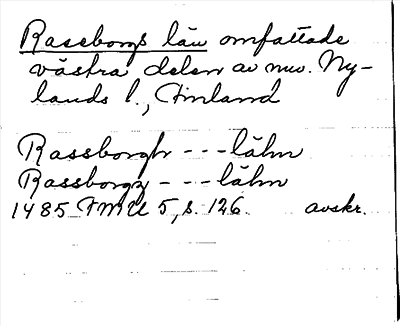 Raseborgs län omfattade
västra delen av nuv. Ny-
lands l., Finland
Rassborgh - - - lähn
Rassborgz - - - lähn
1485 FMU 5, s. 126. avskr.